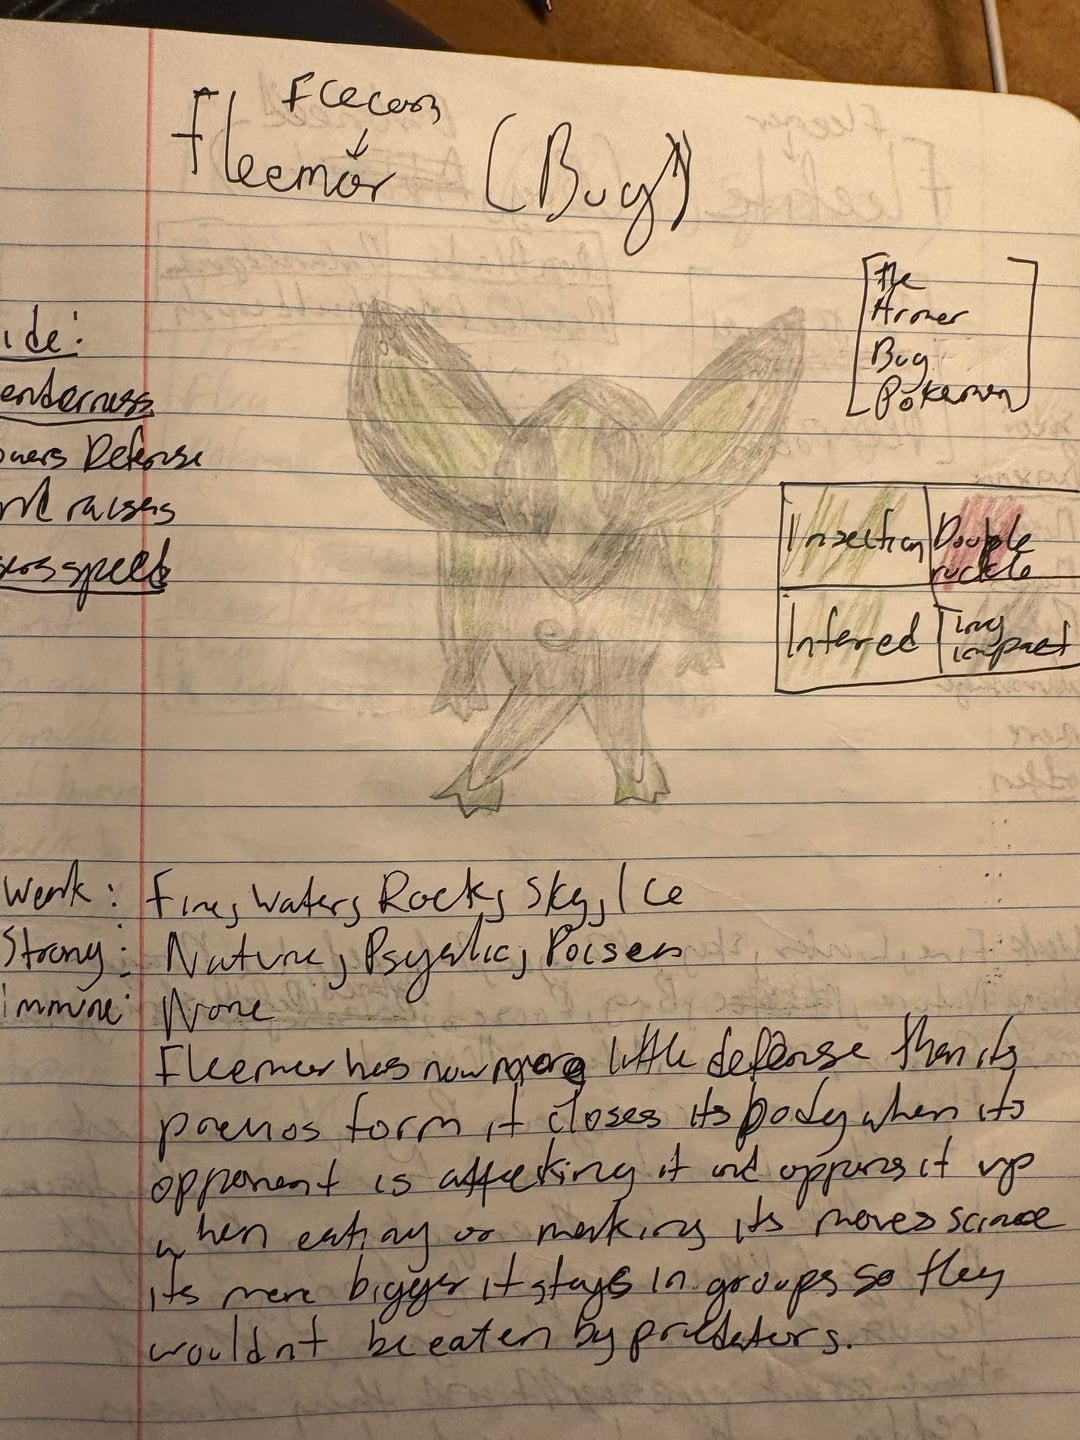 Fleemor (Bug)
[The
Armer
Bug
Pokemon]
ide:
enderness
owers Defense
nd raises
speed
Insection Double
Inferred Tiny
impact
Weak: Fire, Water, Rock, Sky, Ice
Strong: Nature, Psychic, Poisen
immune: None
Fleemor has now more little defense then its
form it closes its body when its
opponent is affecking it and oppens it up
when eating or making its moves scince
its more bigger it stays in groups so they
wouldnt be eaten by predetors.